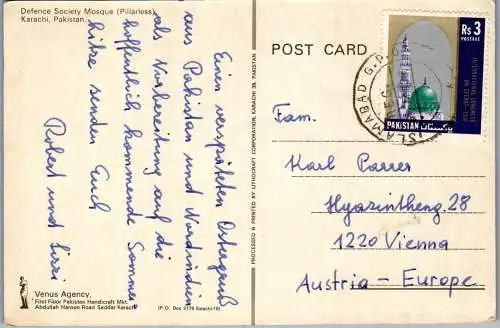 Defence Society Mosque (Pillarless)
Karachi, Pakistan.
Einen verspäteten Ostergruß
aus Pakistan und Nordindien
als Vorbereitung auf die
hoffentlich kommende Sommer-
hitze senden Euch
Robert und Lizzi
Venus Agency,
First Floor Pakistan Handicraft Mkt.
Abdullah Haroon Road Saddar Karachi.
(P.O. Box 2176 Karachi-18)
PROCESSED & PRINTED BY LITHOCRAFT CORPORATION, KARACHI 39, PAKISTAN
POST CARD
Rs 3
POSTAGE
PAKISTAN پاکستان
ISLAMABAD G.P.O.
Fam.
Karl Parrer
Hyazintheng. 28
1220 Vienna
Austria - Europe